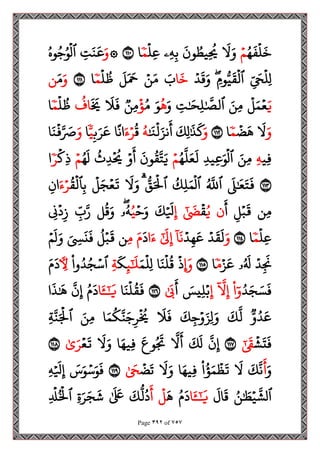 خَلْفَهُمْ وَلَا يُحِيطُونَ بِهِۦ عِلْمًا ١١٠ ۞ وَعَنَتِ ٱلْوُجُوهُ
لِلْحَىِّ ٱلْقَيُّومِ ۖ وَقَدْ خَابَ مَنْ حَمَلَ ظُلْمًا ١١١ وَمَن
يَعْمَلْ مِنَ ٱلصَّـٰلِحَـٰتِ وَهُوَ مُؤْمِنٌ فَلَا يَخَافُ ظُلْمًا
وَلَا هَضْمًا ١١٢ وَكَذَٰلِكَ أَنزَلْنَـٰهُ قُرْءَانًا عَرَبِيًّا وَصَرَّفْنَا
فِيهِ مِنَ ٱلْوَعِيدِ لَعَلَّهُمْ يَتَّقُونَ أَوْ يُحْدِثُ لَهُمْ ذِكْرًا
١١٣ فَتَعَـٰلَى ٱللَّهُ ٱلْمَلِكُ ٱلْحَقُّ ۗ وَلَا تَعْجَلْ بِٱلْقُرْءَانِ
مِن قَبْلِ أَن يُقْضَىٰٓ إِلَيْكَ وَحْيُهُۥ ۖ وَقُل رَّبِّ زِدْنِى
عِلْمًا ١١٤ وَلَقَدْ عَهِدْنَآ إِلَىٰٓ ءَادَمَ مِن قَبْلُ فَنَسِىَ وَلَمْ
نَجِدْ لَهُۥ عَزْمًا ١١٥ وَإِذْ قُلْنَا لِلْمَلَـٰٓئِكَةِ ٱسْجُدُوا۟ لِـَٔادَمَ
فَسَجَدُوٓا۟ إِلَّآ إِبْلِيسَ أَبَىٰ ١١٦ فَقُلْنَا يَـٰٓـَٔادَمُ إِنَّ هَـٰذَا
عَدُوٌّ لَّكَ وَلِزَوْجِكَ فَلَا يُخْرِجَنَّكُمَا مِنَ ٱلْجَنَّةِ
فَتَشْقَىٰٓ ١١٧ إِنَّ لَكَ أَلَّا تَجُوعَ فِيهَا وَلَا تَعْرَىٰ ١١٨
وَأَنَّكَ لَا تَظْمَؤُا۟ فِيهَا وَلَا تَضْحَىٰ ١١٩ فَوَسْوَسَ إِلَيْهِ
ٱلشَّيْطَـٰنُ قَالَ يَـٰٓـَٔادَمُ هَلْ أَدُلُّكَ عَلَىٰ شَجَرَةِ ٱلْخُلْدِ
Page ٤٩٢ of ٧٥٧